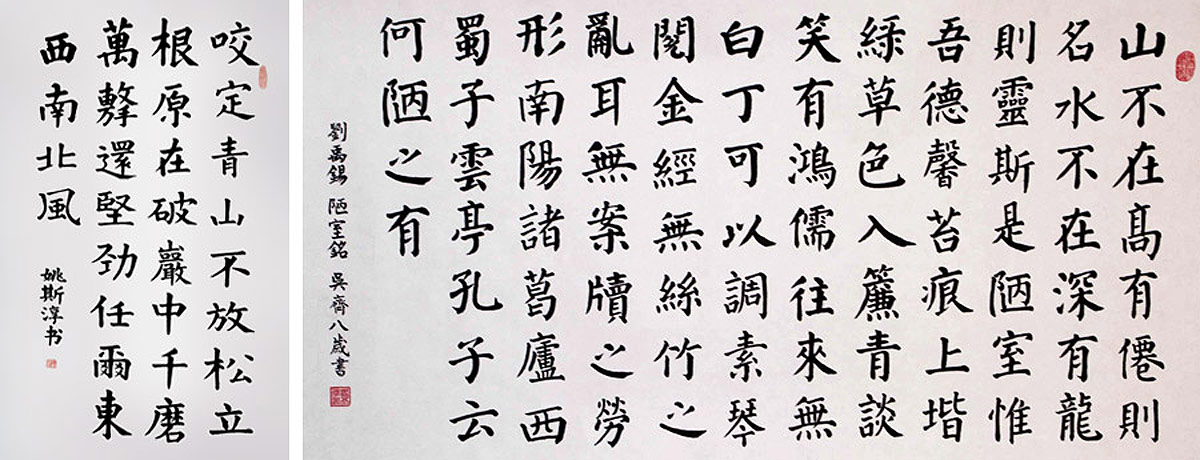 咬定青山不放松立
根原在破巖中千磨
萬擊還堅劲任爾東
西南北風
姚斯淳书
山不在髙有僊則
名水不在深有龍
則靈斯是陋室惟
吾德馨苔痕上堦
綠草色入簾青談
笑有鴻儒往來無
白丁可以調素琴
閱金經無絲竹之
亂耳無案牘之勞
形南陽諸葛廬西
蜀子雲亭孔子云
何陋之有
劉禹錫 陋室銘 吳齊八歲書